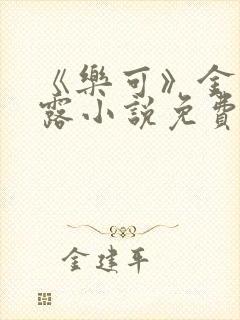 《樂可》金
露小說免費
金建平